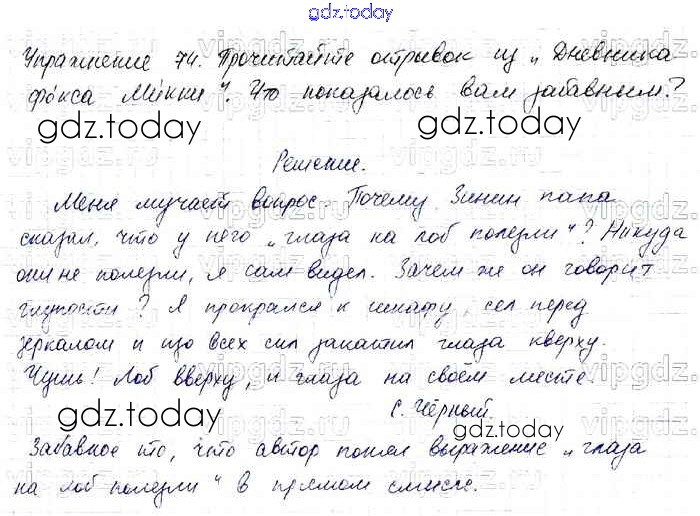 gdz.today
Упражнение 74. Прочитайте отрывок из „Дневника
фокса Микки". Что показалось вам забавным?
gdz.today gdz.today
Решение.
Меня мучает вопрос. Почему Зинин папа
сказал, что у него „глаза на лоб полезли"? Никуда
они не полезли, я сам видел. Зачем же он говорит
глупости? Я прокрался к шкафу, сел перед
зеркалом и изо всех сил закатил глаза кверху.
Чушь! Лоб вверху, и глаза на своём месте.
gdz.today С. Чёрный. gdz.today
Забавное то, что автор понял выражение „глаза
на лоб полезли" в прямом смысле.